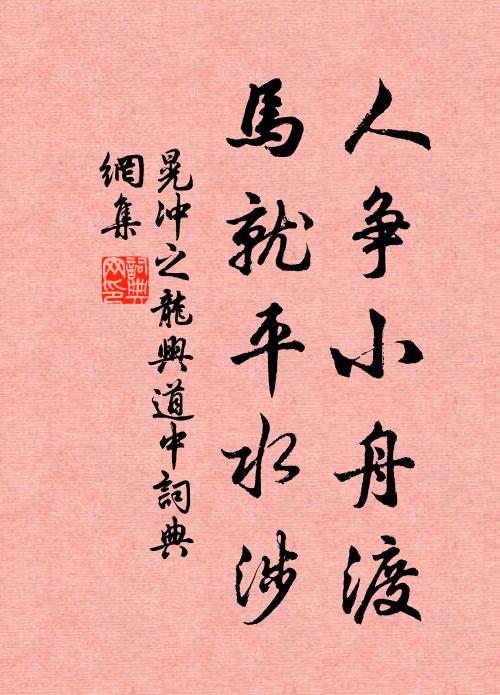 人争小舟渡
馬就平水涉
晁沖之龍興道中詞典
網集
詞典網印